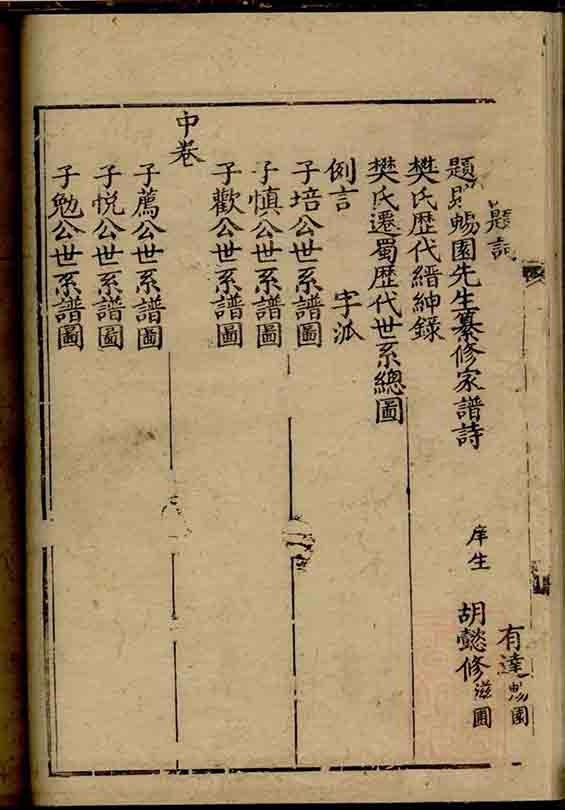 題詞 有達 園
題 暘園先生纂修家譜詩 庠生 胡懿修 滋圃
樊氏歷代縉紳錄
樊氏遷蜀歷代世系總圖
例言 字派
子培公世系譜圖
子慎公世系譜圖
子歡公世系譜圖
中卷
子薦公世系譜圖
子悅公世系譜圖
子勉公世系譜圖